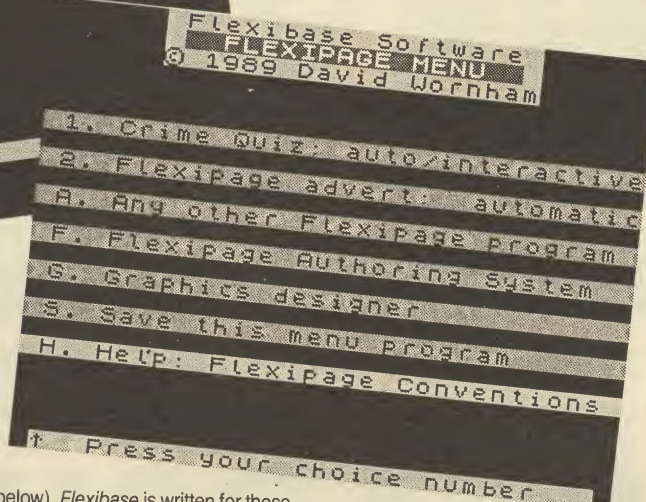 Flexibase Software
FLEXIPAGE MENU
© 1989 David Wornham
1. Crime Quiz: auto/interactive
2. Flexipage advert: automatic
A. Any other Flexipage program
F. Flexipage Authoring System
G. Graphics designer
S. Save this menu program
H. Help: Flexipage Conventions
↑ Press your choice number
below). Flexibase is written for those